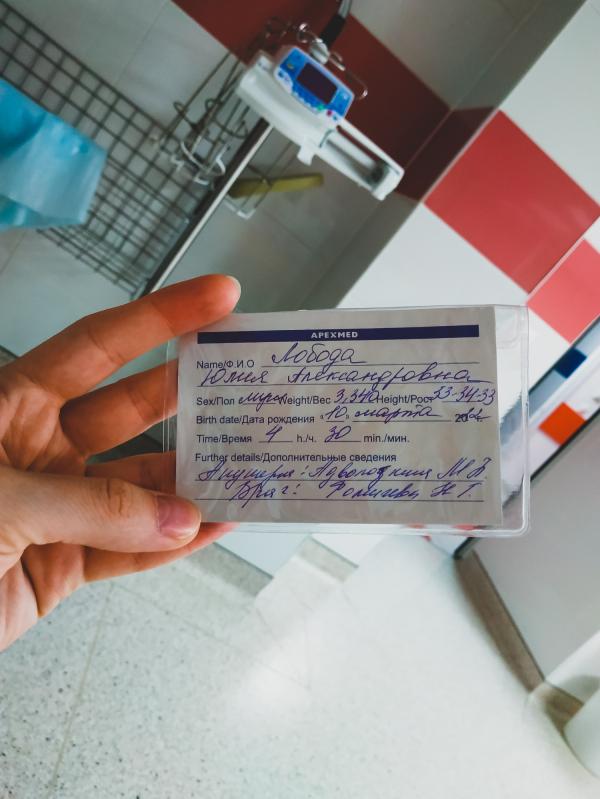 APEXMED
Name/Ф.И.О Лобода
Юлия Александровна
Sex/Пол Weight/Вес 3,340 Height/Рост 53-34-33
Birth date/Дата рождения "10" марта 20
Time/Время 4 h./ч. 30 min./мин.
Further details/Дополнительные сведения
Акушерка: М.В.
Врач: Н.Г.